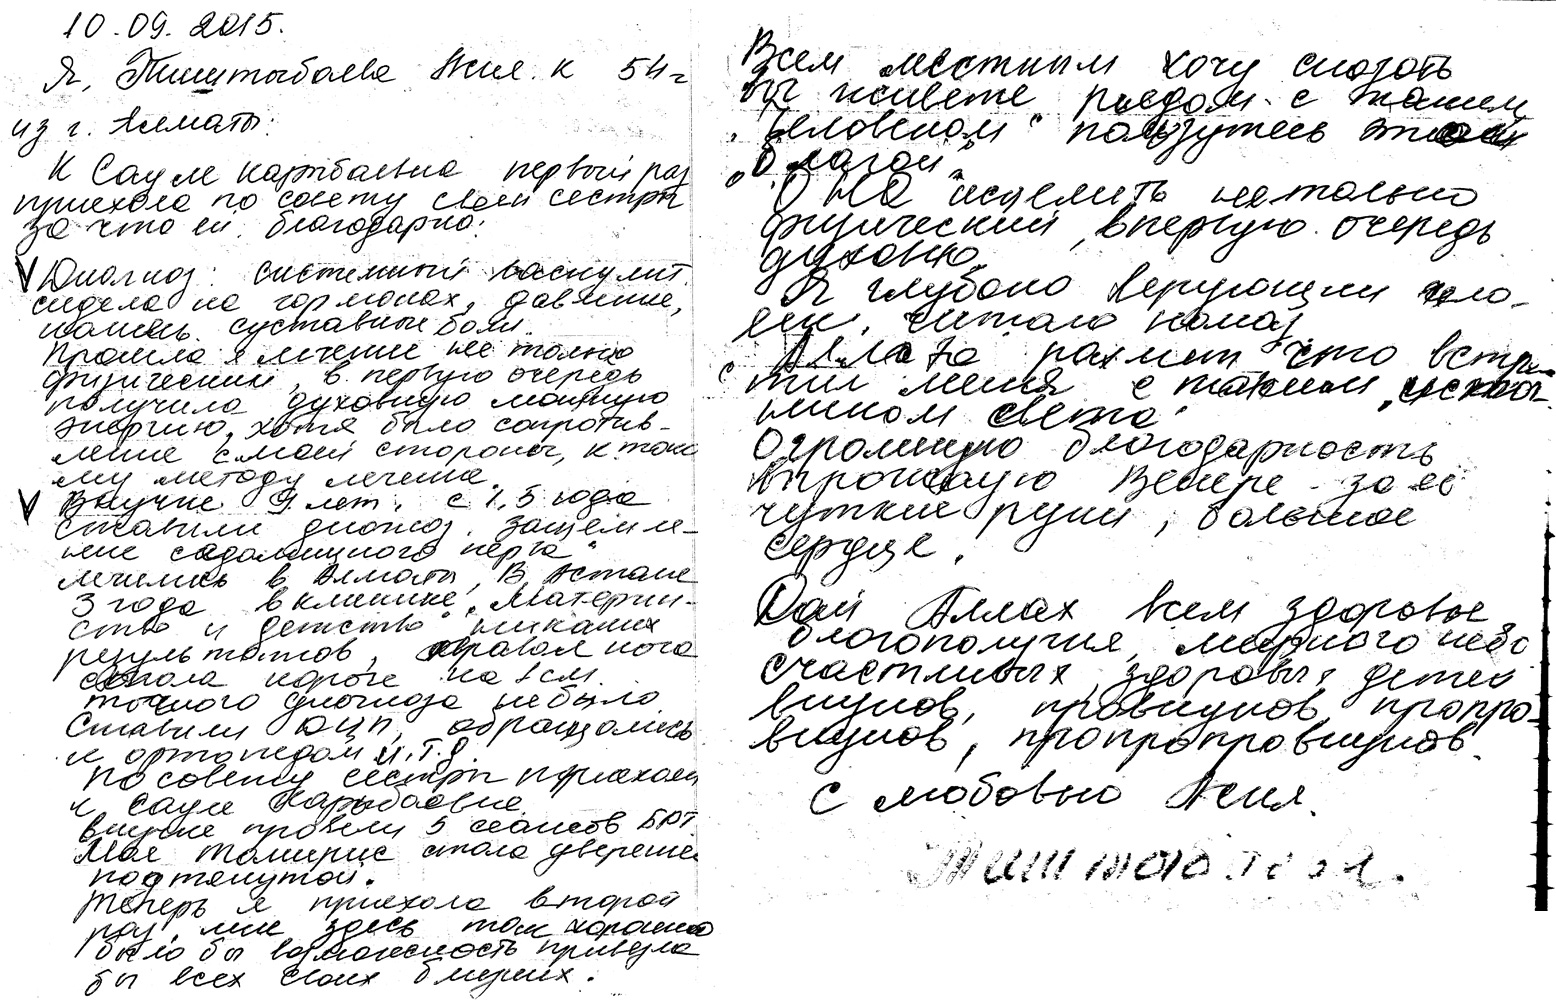 10.09.2015.
Я, Тиштыбаева Асия. К 54 г
из г. Алматы.
К Сауле Карыбаевне первый раз
приехала по совету своей сестры
за что ей благодарна.
V Диагноз: системный васкулит.
сидела на гормонах, давление,
кашель. суставные боли.
Прошла я лечение не только
физический, в первую очередь
получила духовную мощную
энергию, хотя было сопротив-
ление с моей стороны, к тако
му методу лечения.
V Внучке 9 лет. с 1,5 года
ставили диагноз защемле-
ние седалищного нерва"
лечились в Алматы, В Астане
3 года в клинике „Материн-
ство и детство" никаких
результатов, правая нога
стала короче на 1 см.
точного диагноза не было.
Ставили ДЦП, обращались
к ортопедам и.т.д.
По совету сестры приехали
к Сауле Карыбаевне
внучке провели 5 сеансов БРТ
Моя Томирис стала увереннее
подтянутой.
Теперь я приехала второй
раз, мне здесь так хорошо
было бы возможность привезла
бы всех своих близких.
Всем местным хочу сказать
Вы живете рядом с таким
„Человеком" пользуйтесь этой
„благой"
Она исцелить не только
физический, в первую очередь
духовно.
Я глубоко верующий чело-
век, читаю намаз
Аллаға рахмет что встре-
тил меня с таким „источ-
ником света"
Огромную благодарность
выражаю Венере за её
чуткие руки, большое
сердце.
Дай Аллах всем здоровье
благополучия, мирного небо
счастливых, здоровых детей
внуков, правнуков прапра-
внуков, прапраправнуков.
С любовью Асия.